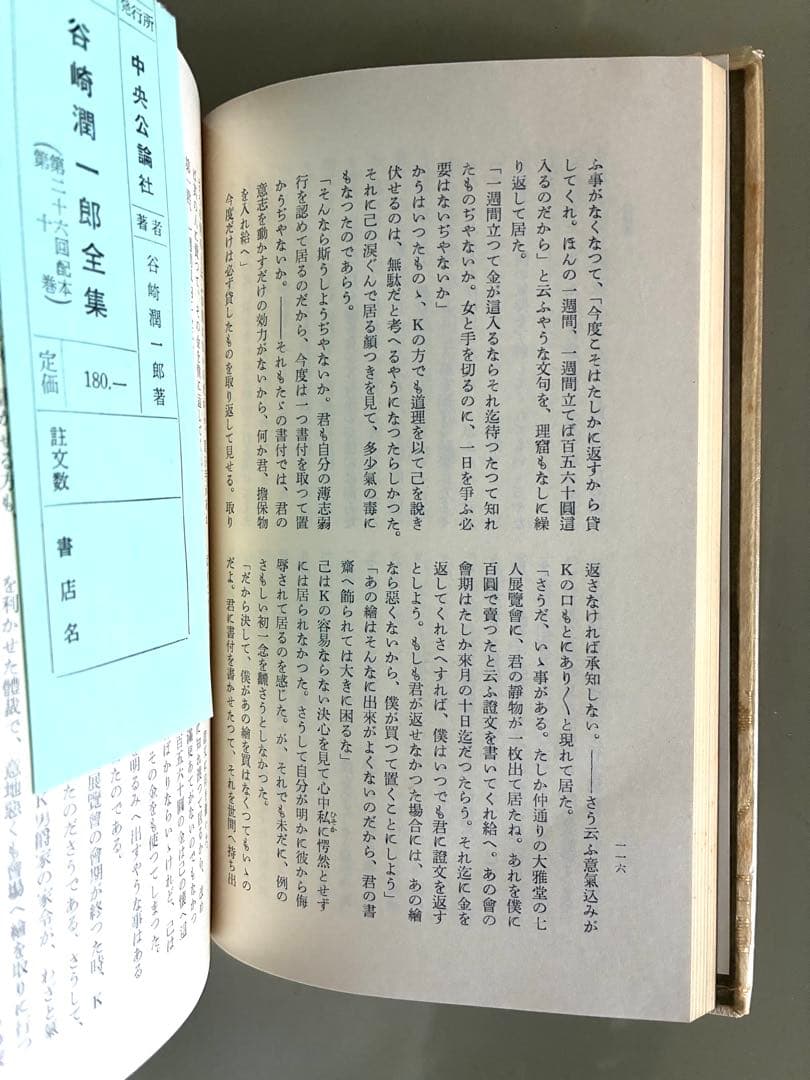 ふ事がなくなつて、「今度こそはたしかに返すから貸
してくれ。ほんの一週間、一週間立てば百五六十圓這
入るのだから」と云ふやうな文句を、理窟もなしに繰
り返して居た。
「一週間立つて金が這入るならそれ迄待つたつて知れ
たものぢやないか。女と手を切るのに、一日を爭ふ必
要はないぢやないか」
かうはいつたものゝ、Kの方でも道理を以て己を說き
伏せるのは、無駄だと考へるやうになつたらしかつた。
それに己の淚ぐんで居る顏つきを見て、多少氣の毒に
もなつたのであらう。
「そんなら斯うしようぢやないか。君も自分の薄志弱
行を認めて居るのだから、今度は一つ書付を取つて置
かうぢやないか。――それもたゞの書付では、君の
意志を動かすだけの効力がないから、何か君、擔保物
を入れ給へ」
今度だけは必ず貸したものを取り返して見せる。取り
返さなければ承知しない。――さう云ふ意氣込みが
Kの口もとにあり〳〵と現れて居た。
「さうだ、いゝ事がある。たしか仲通りの大雅堂の七
人展覽會に、君の靜物が一枚出て居たね。あれを僕に
百圓で賣つたと云ふ證文を書いてくれ給へ。あの會の
會期はたしか來月の十日迄だつたらう。それ迄に金を
返してくれさへすれば、僕はいつでも君に證文を返す
としよう。もしも君が返せなかつた場合には、あの繪
なら惡くないから、僕が買つて置くことにしよう」
「あの繪はそんなに出來がよくないのだから、君の書
齋へ飾られては大きに困るな」
己はKの容易ならない決心を見て心中私に愕然とせず
ひそか
には居られなかつた。さうして自分が明かに彼から侮
辱されて居るのを感じた。が、それでも未だに、例の
さもしい初一念を飜さうとしなかつた。
「だから決して、僕があの繪を買はなくつてもいゝの
だよ。君に書付を書かせたつて、それを世間へ持ち出
一一六
發行所
中央公論社
著者
谷崎潤一郎著
谷崎潤一郎全集
(第二十六回配本
第十卷)
定価
180.―
註文数
書店名
を利かせた體裁で、意地惡くも會場へ繪を取りに行つ
K男爵家の家令が、わざと氣
たのださうである。さうして、
展覽會の會期が終つた時、K
たのである。
明るみへ出すやうな事はある
その金をも使つてしまつた。